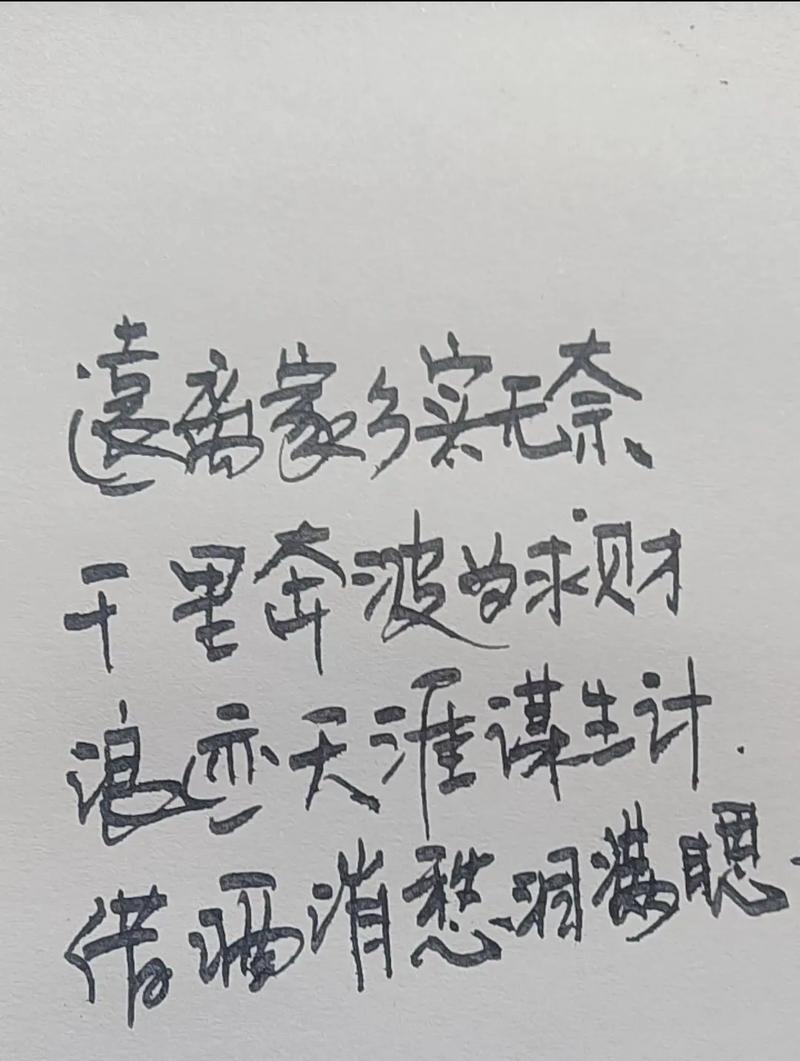 遠离家乡实无奈
千里奔波为求财
浪迹天涯谋生计.
借酒消愁泪满腮